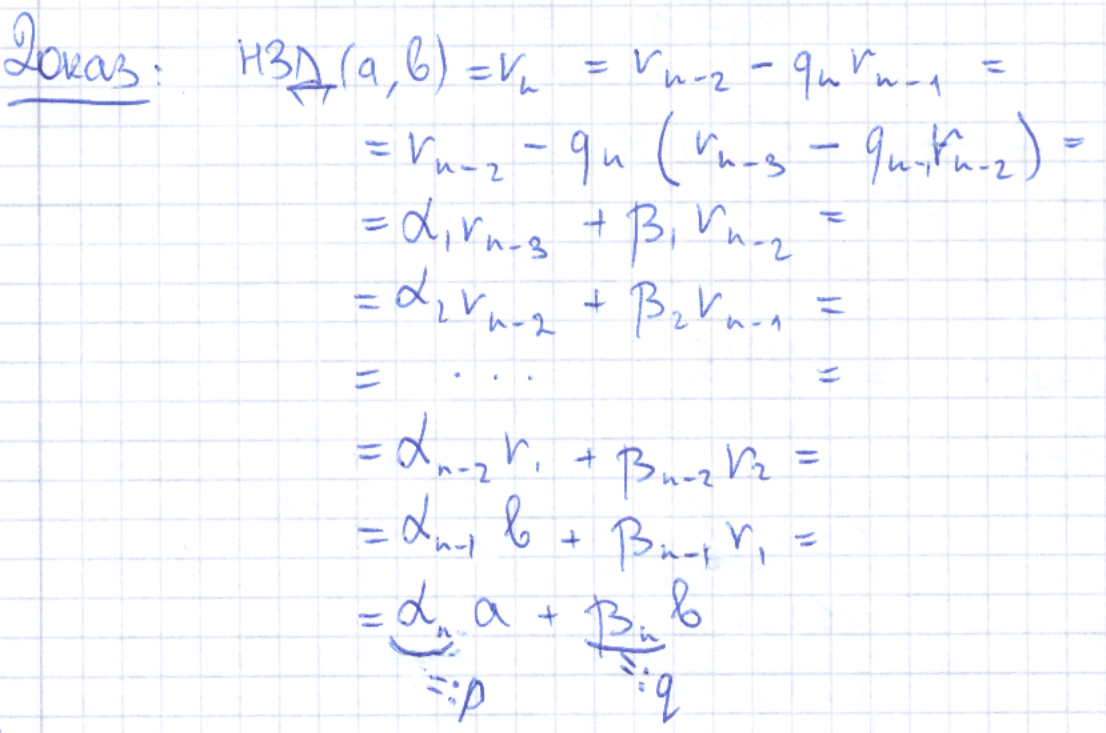 Доказ: НЗД(a, b) = r_n = r_{n-2} - q_n r_{n-1} =
= r_{n-2} - q_n (r_{n-3} - q_{n-1} r_{n-2}) =
= α_1 r_{n-3} + β_1 r_{n-2} =
= α_2 r_{n-2} + β_2 r_{n-1} =
= ... =
= α_{n-2} r_1 + β_{n-2} r_2 =
= α_{n-1} b + β_{n-1} r_1 =
= α_n a + β_n b
=:p =:q